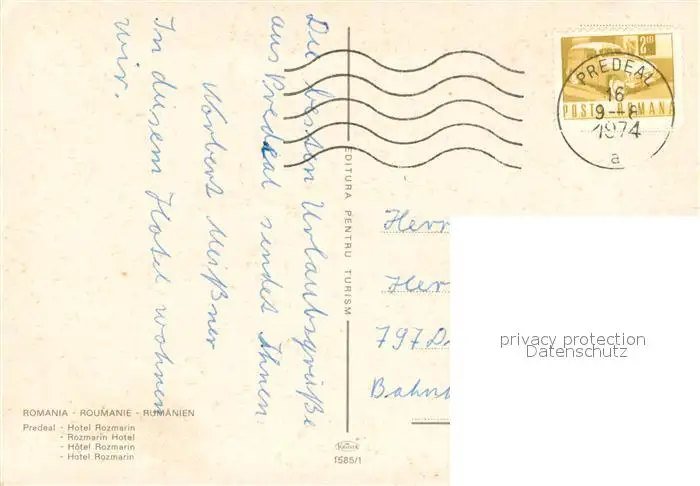 Die besten Urlaubsgrüße
aus Predeal sendet Ihnen
Norbert Meißner
In diesem Hotel wohnen
wir.
EDITURA PENTRU TURISM
2 LEI
POSTA ROMANA
PREDEAL
16
9--8
1974
a
Herr
Her
797 D
Bahnh
privacy protection
Datenschutz
ROMANIA - ROUMANIE - RUMÄNIEN
Predeal - Hotel Rozmarin
- Rozmarin Hotel
- Hôtel Rozmarin
- Hotel Rozmarin
1585/1